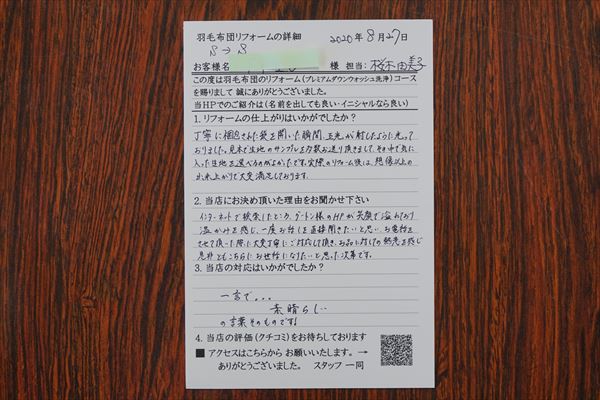 羽毛布団リフォームの詳細 2020年8月27日
S→S
お客様名 様 担当:桜木由美子
この度は羽毛布団のリフォーム(プレミアムダウンウォッシュ洗浄)コース
を賜りまして 誠にありがとうございました。
当HPでのご紹介は(名前を出しても良い・イニシャルなら良い)
1.リフォームの仕上がりはいかがでしたか?
丁寧に梱包された袋を開いた瞬間、光が射したように光って
おりました。見本で生地のサンプルを数枚お送り頂きまして、その中で気に
入った生地を選べるのがよかったです。実際のリフォーム後は、想像以上の
出来上がりで大変満足しております。
2.当店にお決め頂いた理由をお聞かせ下さい
インターネットで検索したところ、ダートン様のHPが笑顔で溢れており
温かみを感じ、一度お話しを直接聞きたいと思い、お電話を
させて頂いた際に大変丁寧にご対応して頂き、お品に対しての熱意を感じ
是非ともこちらにお世話になりたいと思った次第です。
3.当店の対応はいかがでしたか?
一言で...
素晴らしい
の言葉そのものです!
4.当店の評価(クチコミ)をお待ちしております
■ アクセスはこちらから お願いいたします。→
ありがとうございました。 スタッフ一同